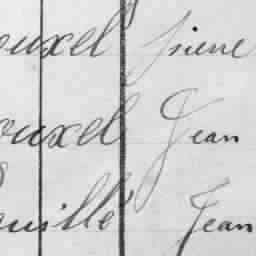 ouxel Pierre
ouxel Jean
ouillé Jean